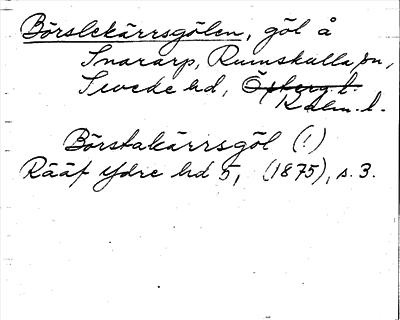 Börslekärrsgölen, göl å
Snararp, Rumskulla sn,
Sevede hd, Österg. l.
Kalm. l.
Börstakärrsgöl (!)
Rääf Ydre hd 5, (1875), s. 3.